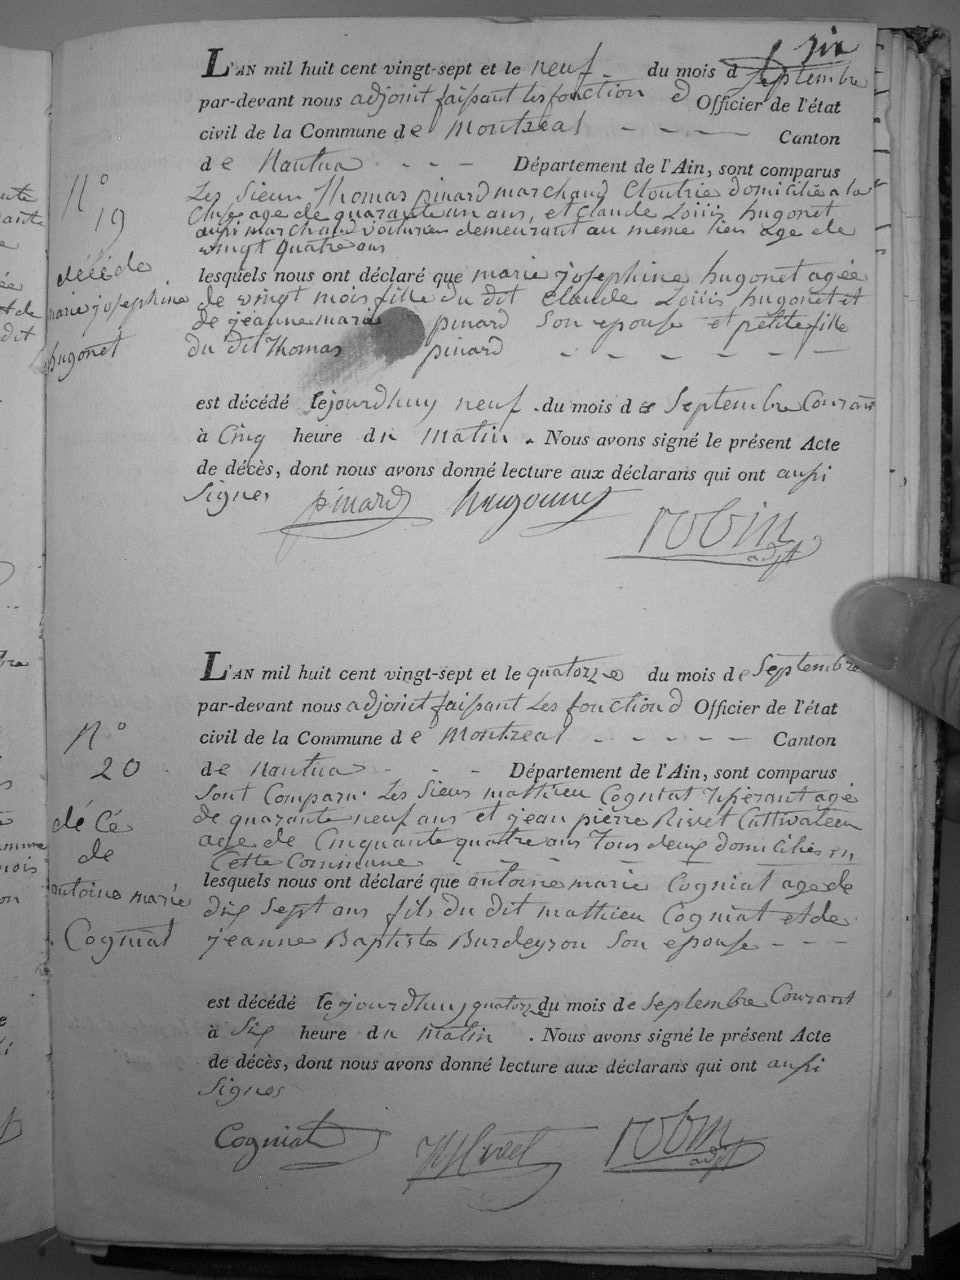 six
L'AN mil huit cent vingt-sept et le neuf du mois d Septembre
par-devant nous adjoint faisant les fonction d Officier de l'état
civil de la Commune de Montreal Canton
de Nantua Département de l'Ain, sont comparus
N° 19
Les Sieur Thomas pinard marchand Cloutrie domicilié a la
Cluse age de quarante un ans, et Claude Loüis hugonet
aussi marchand voiturier demeurant au meme lieu age de
vingt quatre ans
décé de
marie josephine
hugonet
lesquels nous ont déclaré que marie josephine hugonet agée
de vingt mois fille du dit Claude Loüis hugonet et
de jeanne marie pinard son epouse et petite fille
du dit Thomas pinard
est décédé le jourdhuy neuf du mois de Septembre Courant
à Cinq heure du Matin. Nous avons signé le présent Acte
de décès, dont nous avons donné lecture aux déclarans qui ont aussi
Signes
pinard hugonnet
robin
adjt
L'AN mil huit cent vingt-sept et le quatorze du mois de Septembre
par-devant nous adjoint faisant Les fonction d Officier de l'état
civil de la Commune de Montreal Canton
N°
20
de Nantua Département de l'Ain, sont comparus
Sont Comparu. Les Sieur mathieu Cogniat agé
de quarante neuf ans et jean pierre Rivet Cultivateur
age de Cinquante quatre ans Tous deux domiciliés en
Cette Commune
décé
de
antoine marie
Cogniat
lesquels nous ont déclaré que antoine marie Cogniat age de
dix Sept ans fils du dit mathieu Cogniat et de
jeanne Baptiste Burdeyron Son epouse
est décédé le jourdhuy quatorze du mois de Septembre Courant
à Six heure du Matin. Nous avons signé le présent Acte
de décès, dont nous avons donné lecture aux déclarans qui ont aussi
Signes
Cogniat robin
adjt